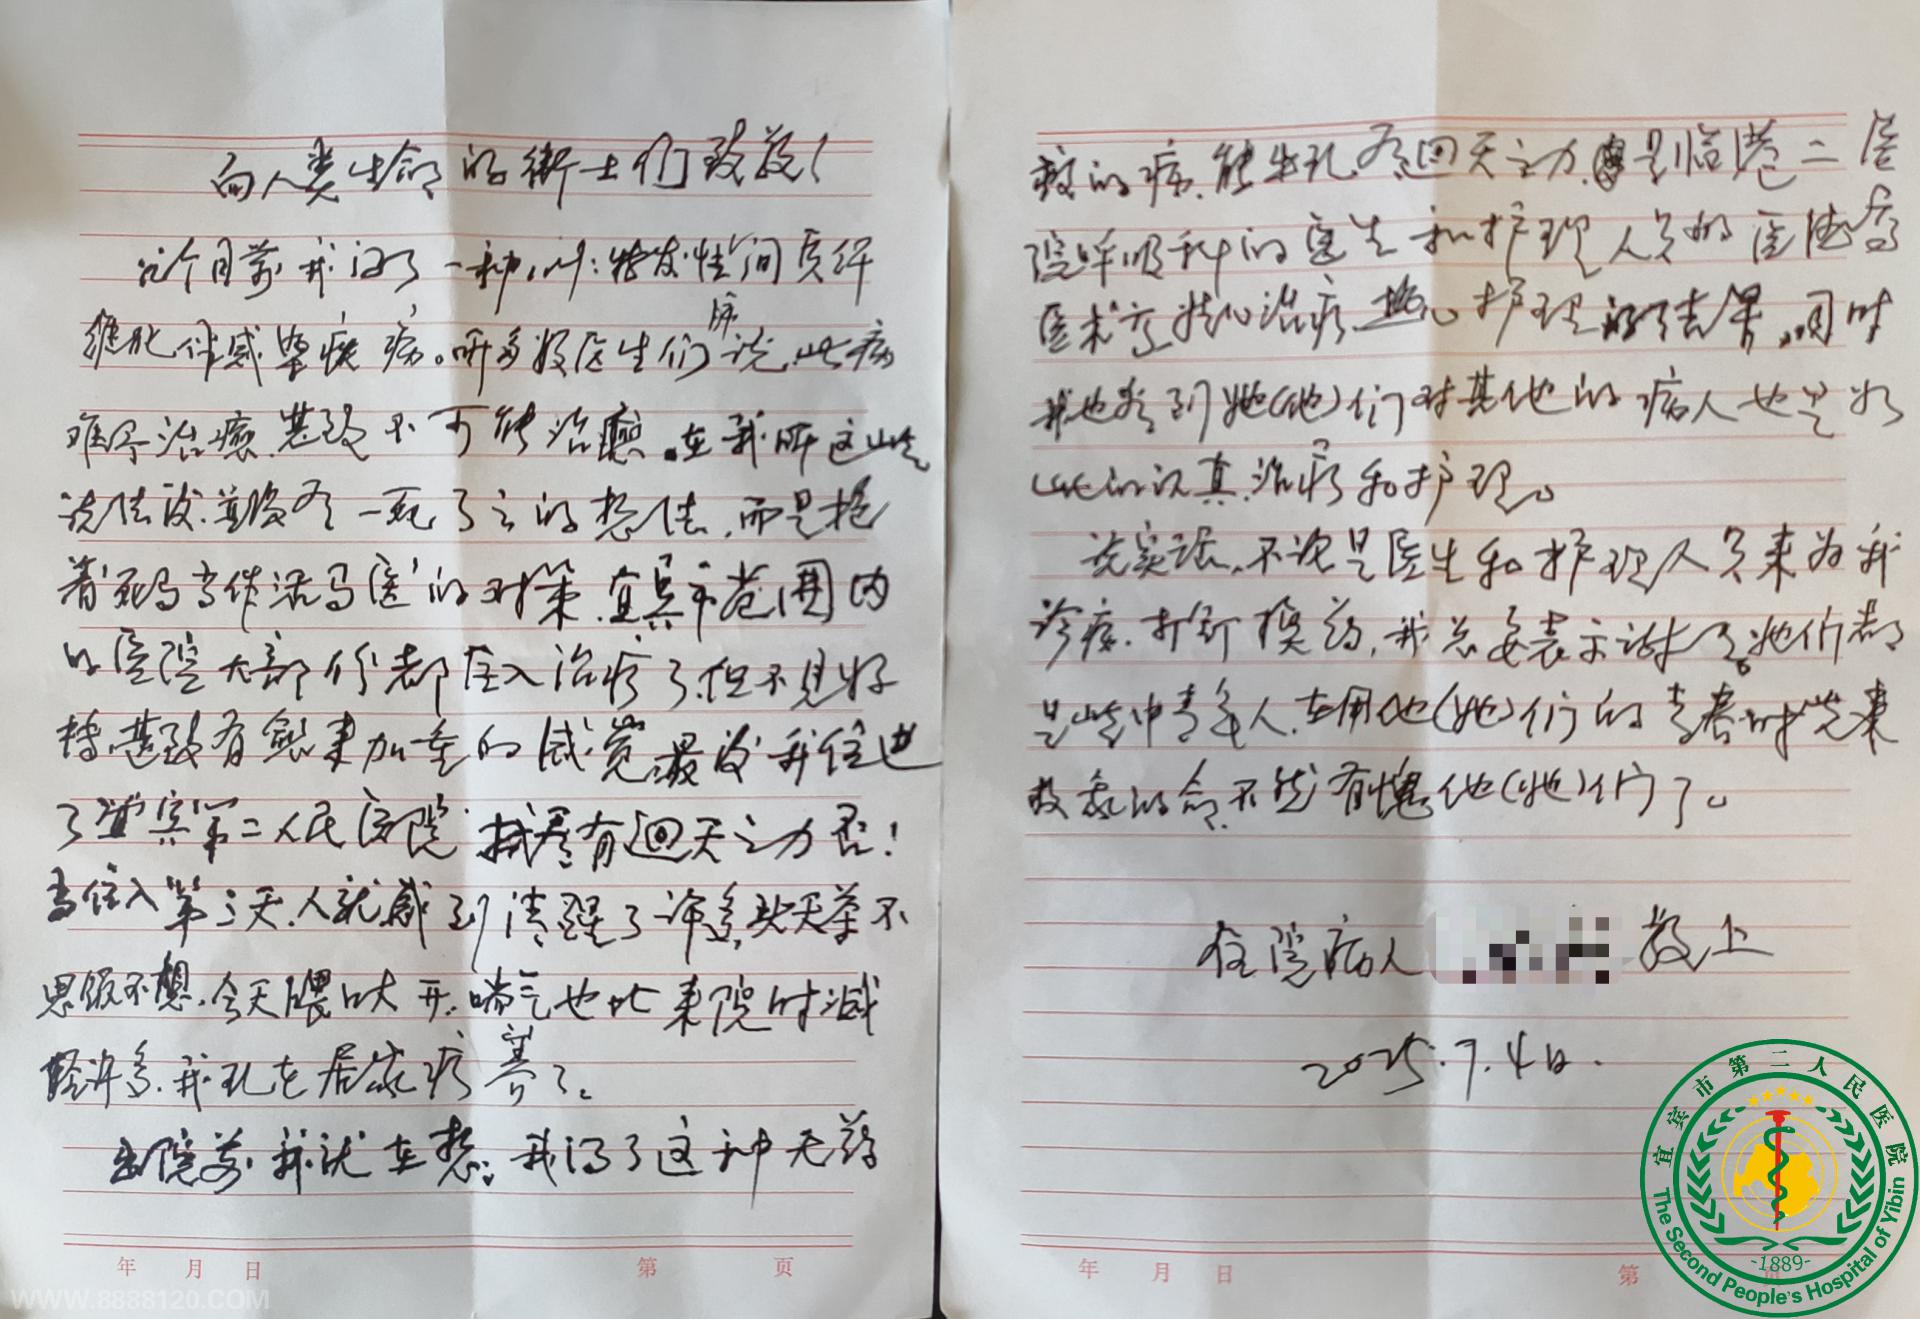 向人类生命的卫士们致敬！
个月前我得了一种叫：特发性间质纤
维化伴感染疾病。听多数医生们说，此病
难于治癒，甚致不可能治癒。在我听这些
说法后，并没有一死了之的想法，而是抱
着死马当作活马医的对策，宜宾市范围内
的医院大部份都住入治疗了，但不见好
转，甚致有越来加重的感觉，最后我住进
了宜宾第二人民医院，试看有回天之力否！
当住入第三天，人就感到清醒了许多，头天茶不
思饭不想，今天胃口大开，喘气也比来院时减
轻许多，我现在居家疗养了。
出院前我就在想：我得了这种无药
救的病，能生还，有回天之力，是临港二医
院呼吸科的医生和护理人员的医德高
医术高，精心治疗，热心护理的结果。同时
我也看到她（他）们对其他的病人也是如
此的认真治疗和护理。
说实话，不论是医生和护理人员来为我
诊疗，打针换药，我总要表示谢意。她们都
是些中青年人，在用他（她）们的青春时光来
救我的命，不能有愧他（她）们了。
住院病人
敬上
2025.7.4日.
年 月 日 第 页
年 月 日 第
宜宾市第二人民医院
The Second People's Hospital of Yibin
-1889-
WWW.8888120.COM